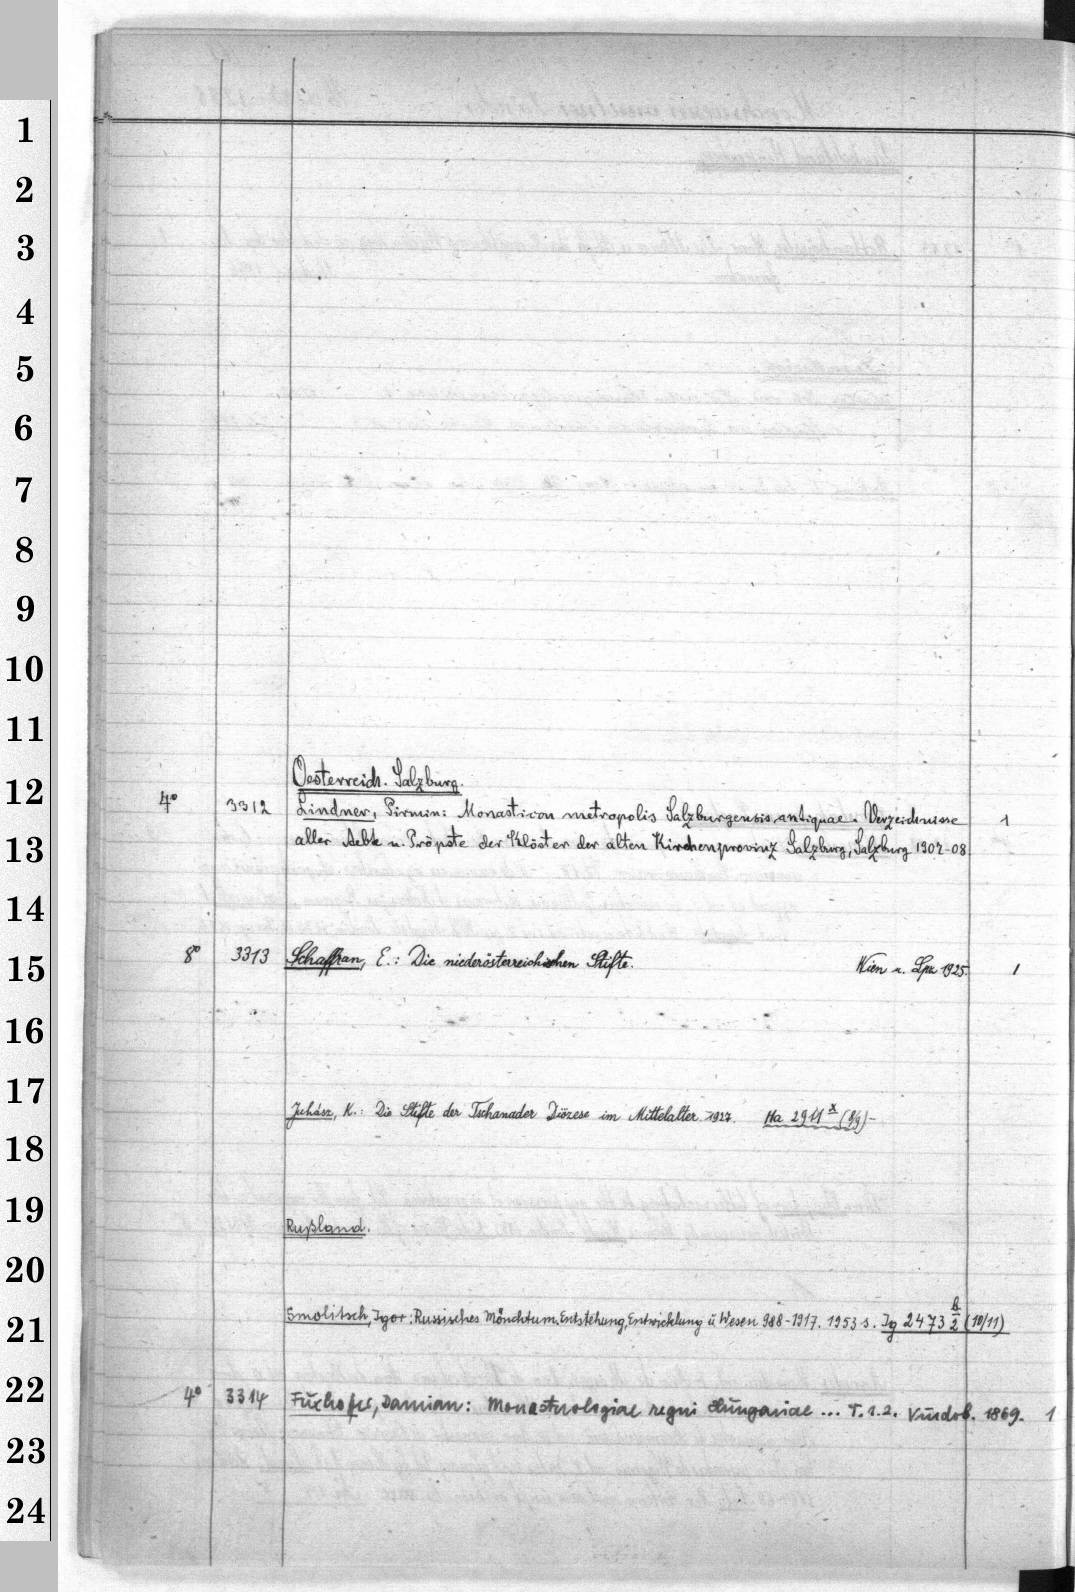 1
2
3
4
5
6
7
8
9
10
11
12
13
14
15
16
17
18
19
20
21
22
23
24
Oesterreich. Salzburg.
4° 3312 Lindner, Pirmin: Monasticon metropolis Salzburgensis antiquae. Verzeichnisse 1
aller Aebte u. Pröpste der Klöster der alten Kirchenprovinz Salzburg, Salzburg 1907-08
8° 3313 Schaffran, E.: Die niederösterreichischen Stifte. Wien u. Lpz 1925. 1
Juhász, K.: Die Stifte der Tschanader Diözese im Mittelalter. 1927. Ha 2911 x (8/9) -
Rußland.
Smolitsch, Igor: Russisches Mönchtum, Entstehung, Entwicklung u Wesen 988-1917. 1953 s. Ig 2473 b/2 (10/11)
4° 3314 Fuxhofer, Damian: Monasteriologiae regni Hungariae ... T.1.2. Vindob. 1869. 1